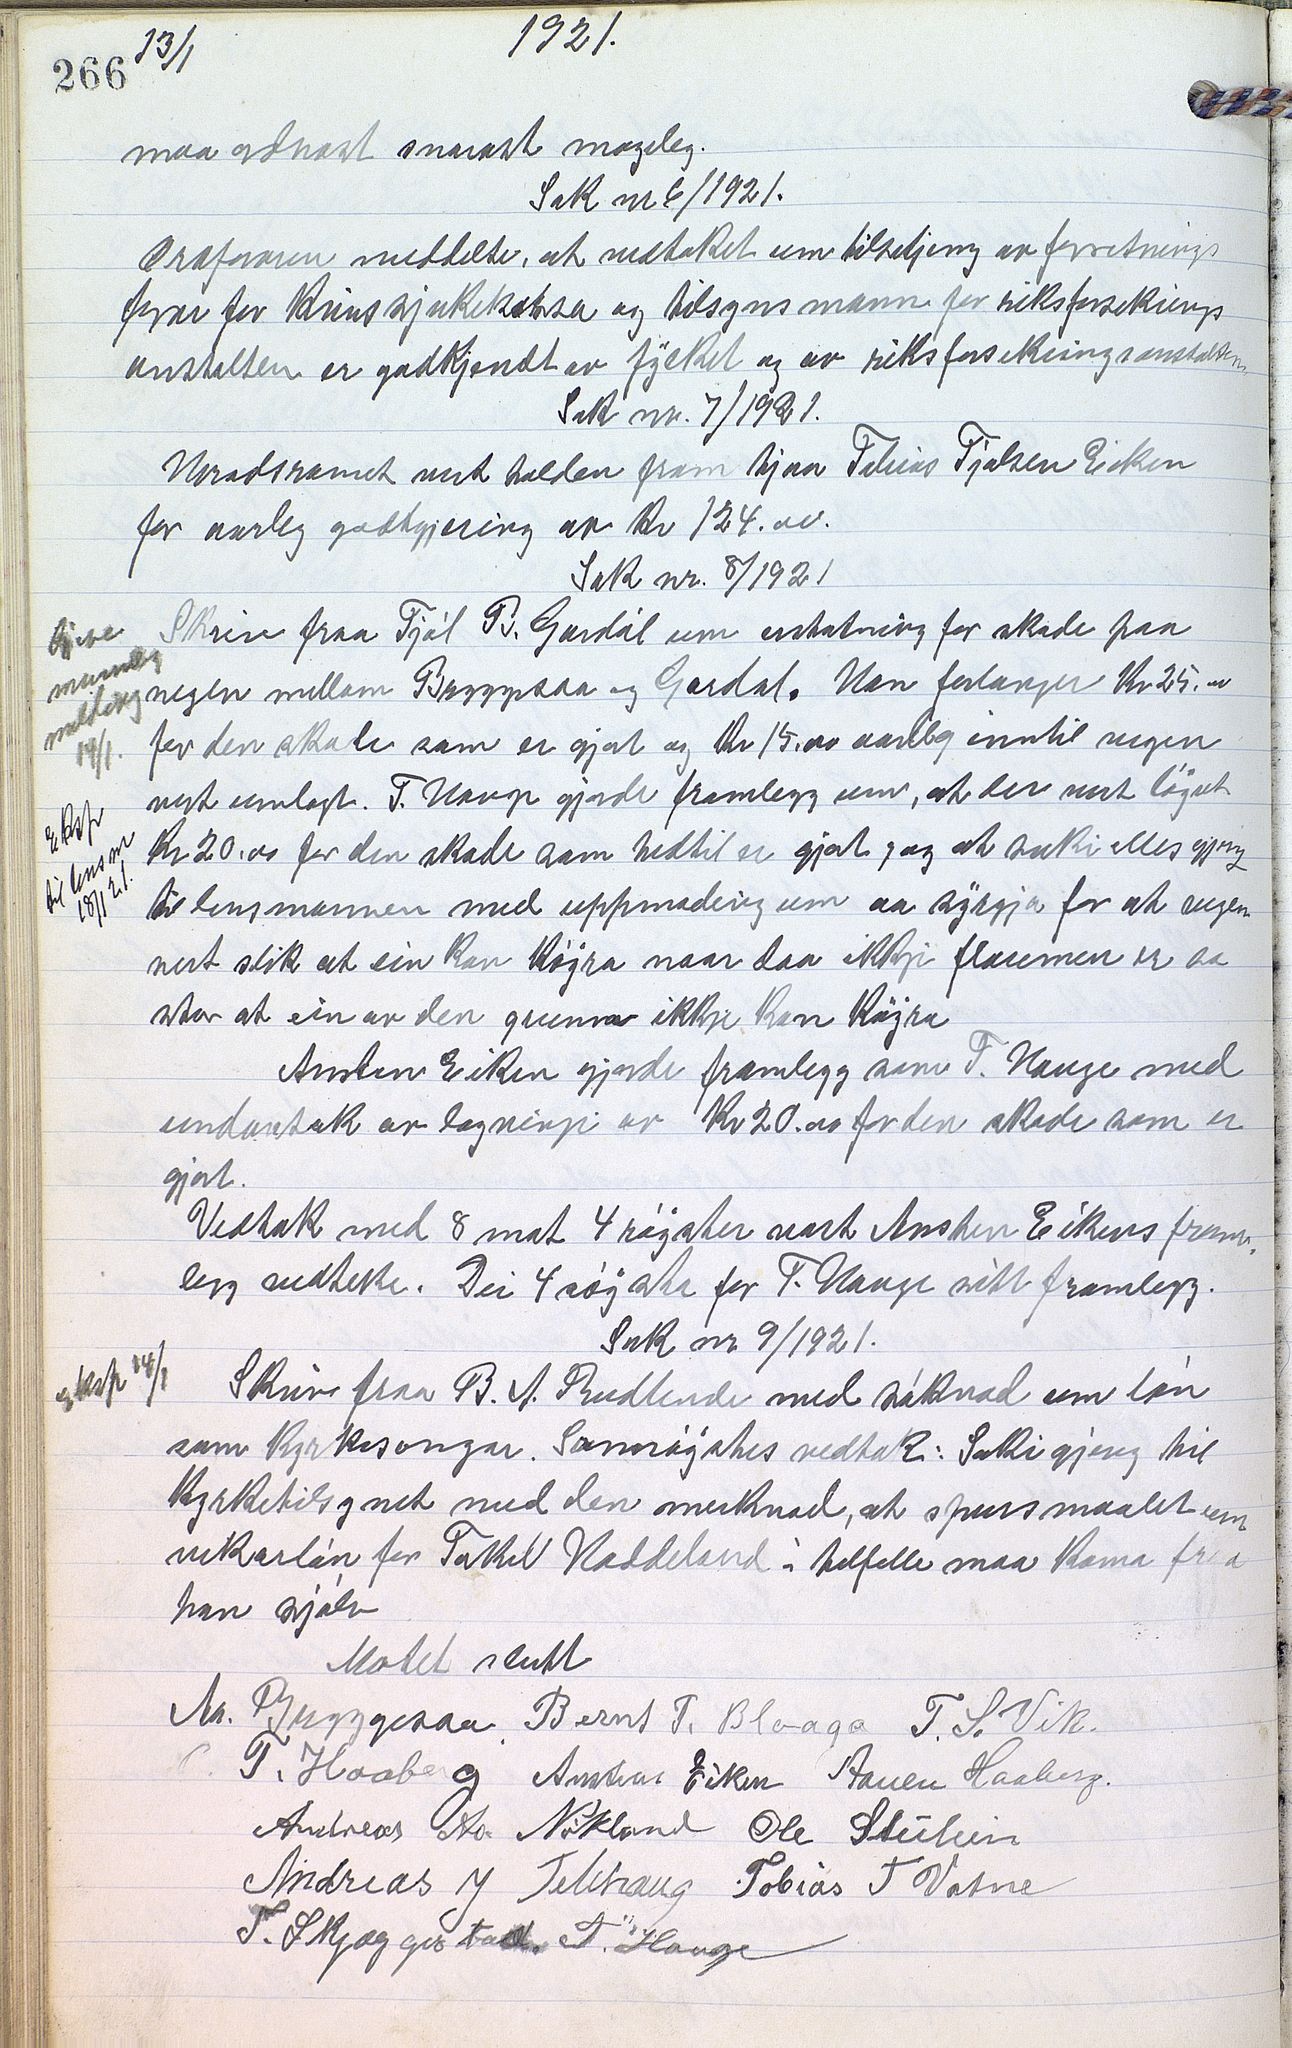 266
13/1
1921.
maa ordnast snarast mogeleg.
Sak nr 6/1921.
Ordføraren meddelte, at vedtaket um tilsetjing av forretnings
førar for Krinssjukekassa og tilsynsmann for riksforsekrings
anstalten er godkjendt av fylket og av riksforsekringsanstalten.
Sak nr. 7/1921.
Heradsromet vert halden fram hjaa Tobias Tjølsen Eiken
for aarleg godtgjering av Kr 124.00.
Sak nr. 8/1921
Gjeve
munnleg
melding
14/1.
Skriv fraa Tjøl B. Gardål um erstatning for skade paa
vegen millom Bryggesaa og Gardal. Han forlanger Kr 25.00
for den skade som er gjort og Kr 15.00 aarleg inntil vegen
vert umlagt. T. Hauge gjorde framlegg um, at der vert løgvet
Eksp
til lensm
18/1 21.
Kr 20.00 for den skade som hedtil er gjort, og at saki elles gjeng
til lensmannen med uppmoding um aa syrgja for at vegen
vert slik at ein kan køyra naar daa ikkje flaumen er so
stor at ein av den grunn ikkje kan køyra
Ansten Eiken gjorde framlegg som T. Hauge med
undantak av løgvingi av Kr 20.00 for den skade som er
gjort.
Vedtak med 8 mot 4 røyster vart Ansten Eikens fram-
legg vedteke. Dei 4 røyste for T. Hauge sitt framlegg.
Sak nr 9/1921.
eksp 14/1
Skriv fraa B. A. Rudlende med søknad um løn
som kyrkesongar. Samrøystes vedtak: Saki gjeng til
Kyrketilsynet med den merknad, at spursmaalet um
vikarløn for Torkel Haddeland i tilfelle maa koma fraa
han sjølv
Møtet slutt
Aa. Bryggesaa Bernt T. Bloaga T. S. Vik.
T. Haaberg Ansten Eiken Aanen Haaberg.
Andreas Aa Nökland Ole Stulien
Andreas J Telthaug Tobias T Vatne
T. Skjæggestad. T. Hauge